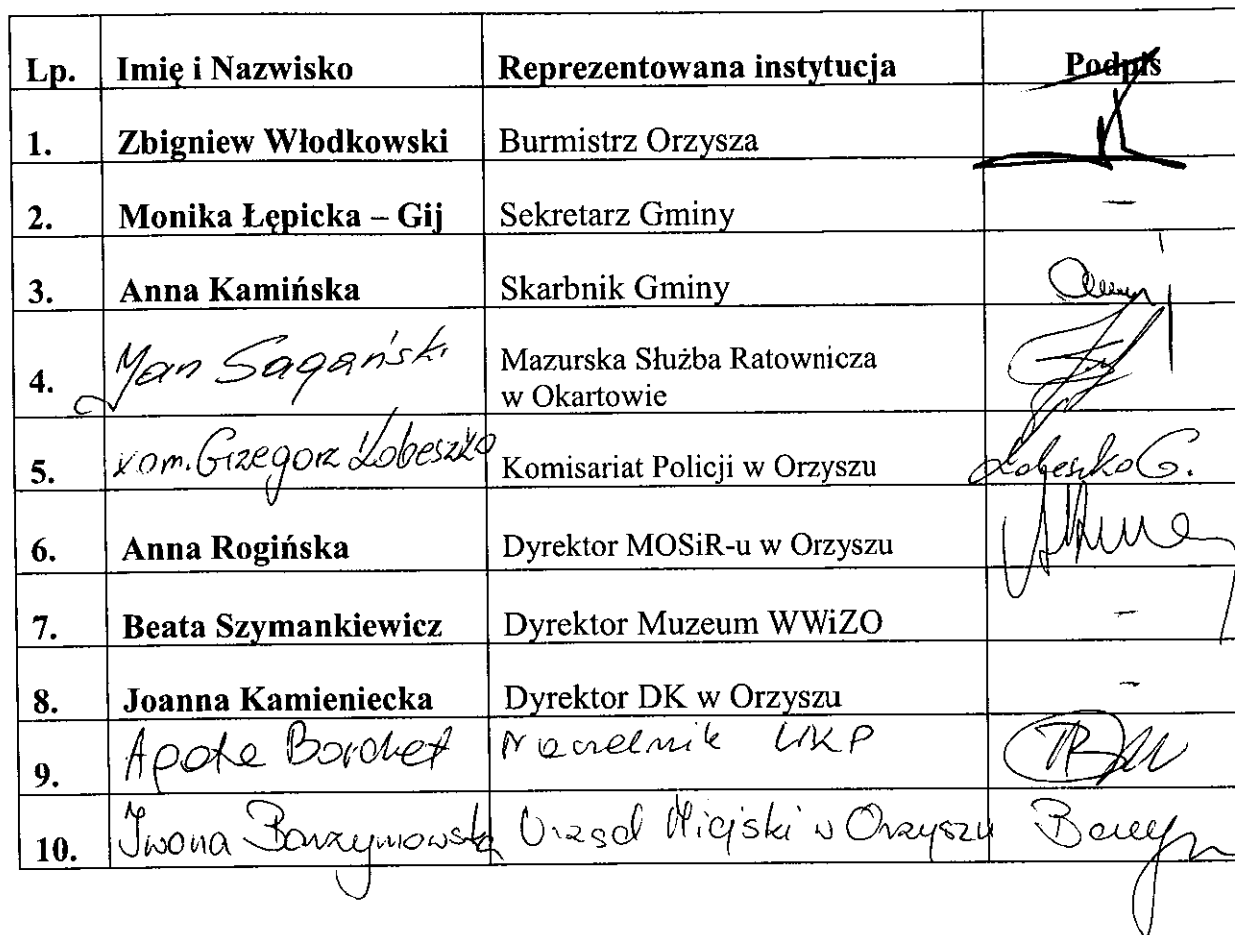 Lp. Imię i Nazwisko Reprezentowana instytucja Podpis
1. Zbigniew Włodkowski Burmistrz Orzysza
2. Monika Łępicka – Gij Sekretarz Gminy –
3. Anna Kamińska Skarbnik Gminy
4. Jan Sagański Mazurska Służba Ratownicza
w Okartowie
5. kom. Grzegorz Łobeszko Komisariat Policji w Orzyszu Łobeszko G.
6. Anna Rogińska Dyrektor MOSiR-u w Orzyszu
7. Beata Szymankiewicz Dyrektor Muzeum WWiZO –
8. Joanna Kamieniecka Dyrektor DK w Orzyszu –
9. Naczelnik
10. Iwona Barzymowska Urząd Miejski w Orzyszu